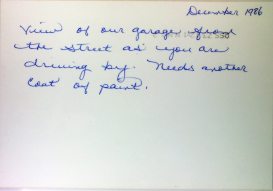 December 1986
View of our garage from
the street as you are
driving by. Needs another
coat of paint.